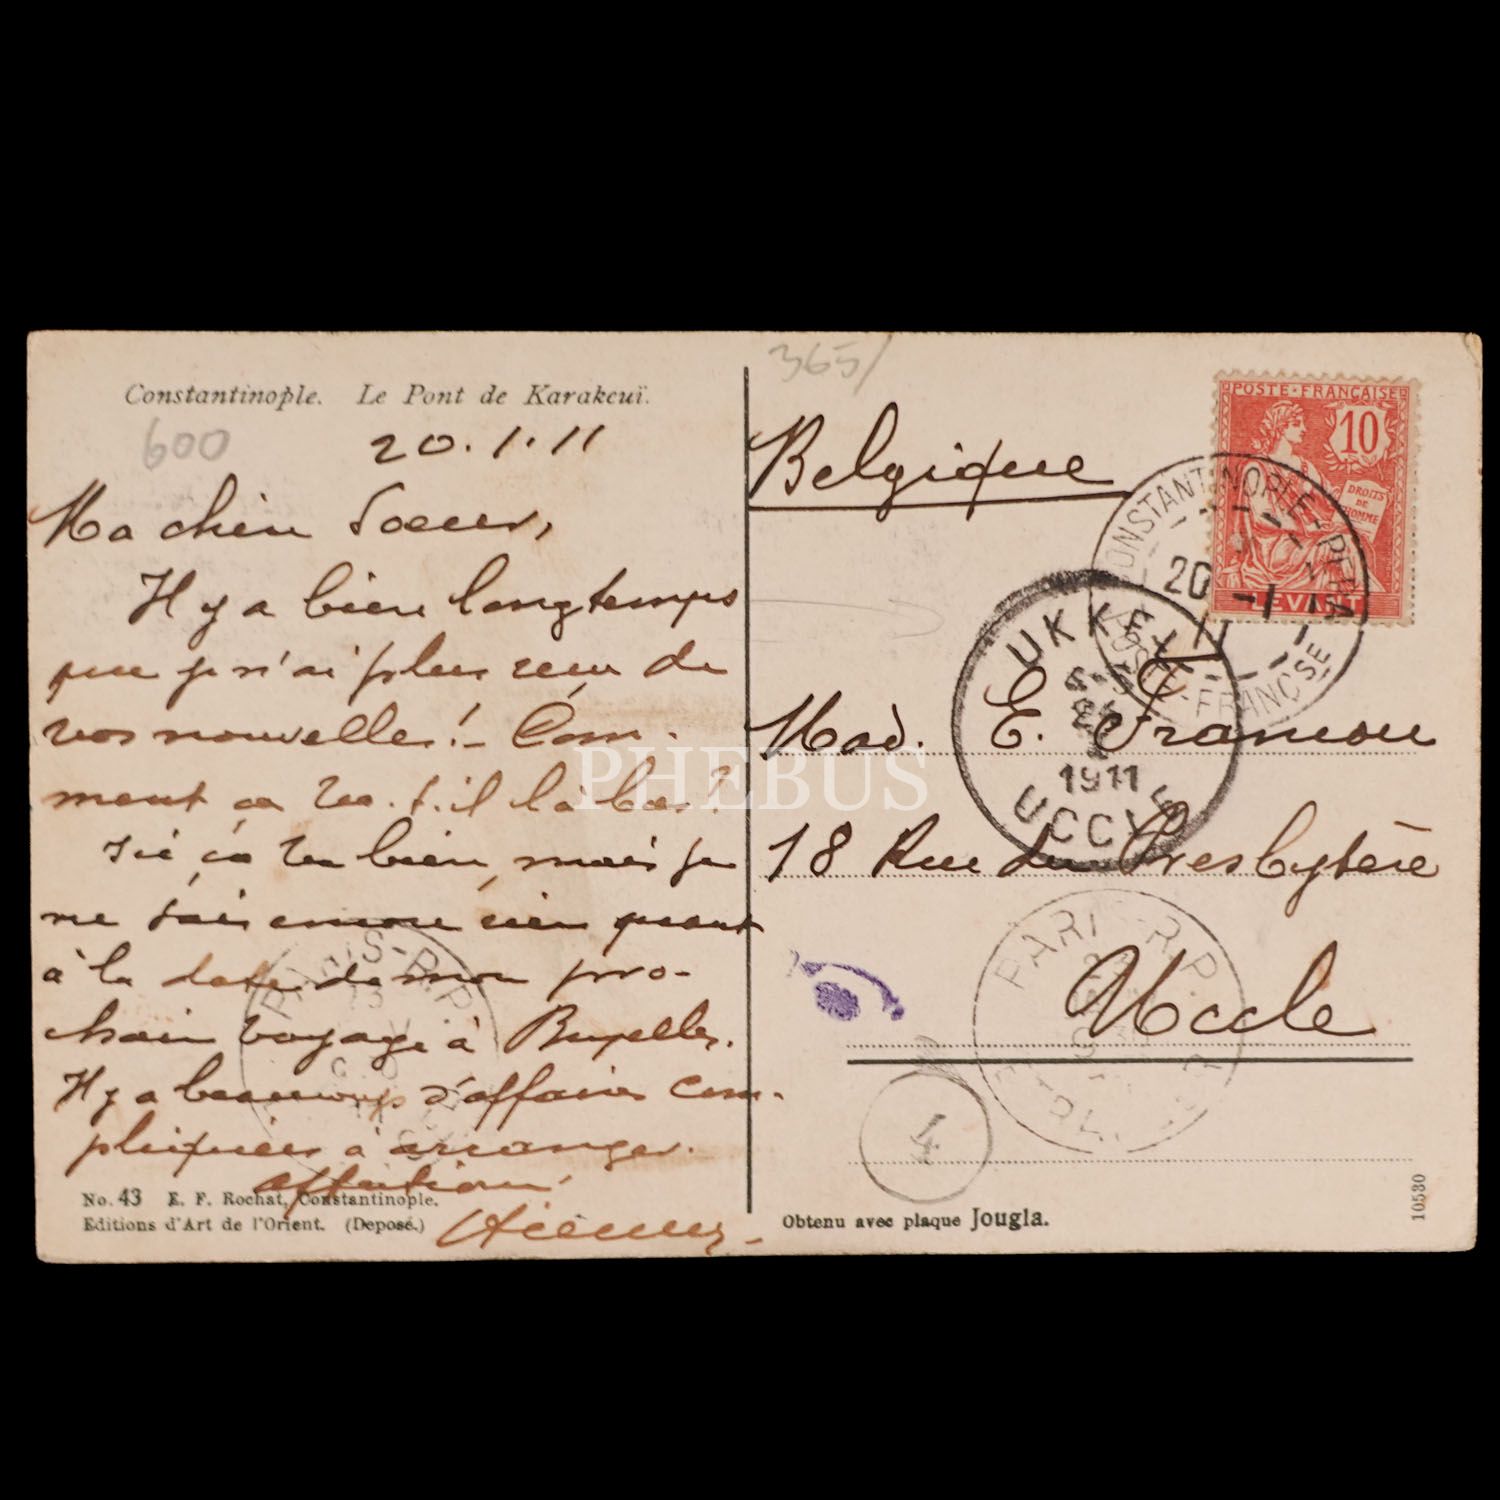 Constantinople. Le Pont de Karakeuï.
600
20.1.11
Ma chère Soeur,
Il y a bien longtemps
que je n'ai plus reçu de
vos nouvelles! - Com-
ment ça va-t-il là bas?
Ici ça va bien, mais je
ne sais encore rien quant
à la date de mon pro-
chain voyage à Bruxelles.
Il y a beaucoup d'affaires com-
pliquées à arranger.
No. 43 E. F. Rochat, Constantinople.
Editions d'Art de l'Orient. (Deposé.)
PARIS-R.P.
365/
Belgique
POSTE·FRANÇAISE
10
DROITS
DE
HOMME
LEVANT
CONSTANTINOPLE-PERA
20 -1
11
POSTE-FRANÇSE
UKKEL
1911
UCCLE
Mad. E. Francou
18 Rue du Presbytère
Uccle
PARIS R.P.
4
Obtenu avec plaque Jougla.
10530
PHEBUS